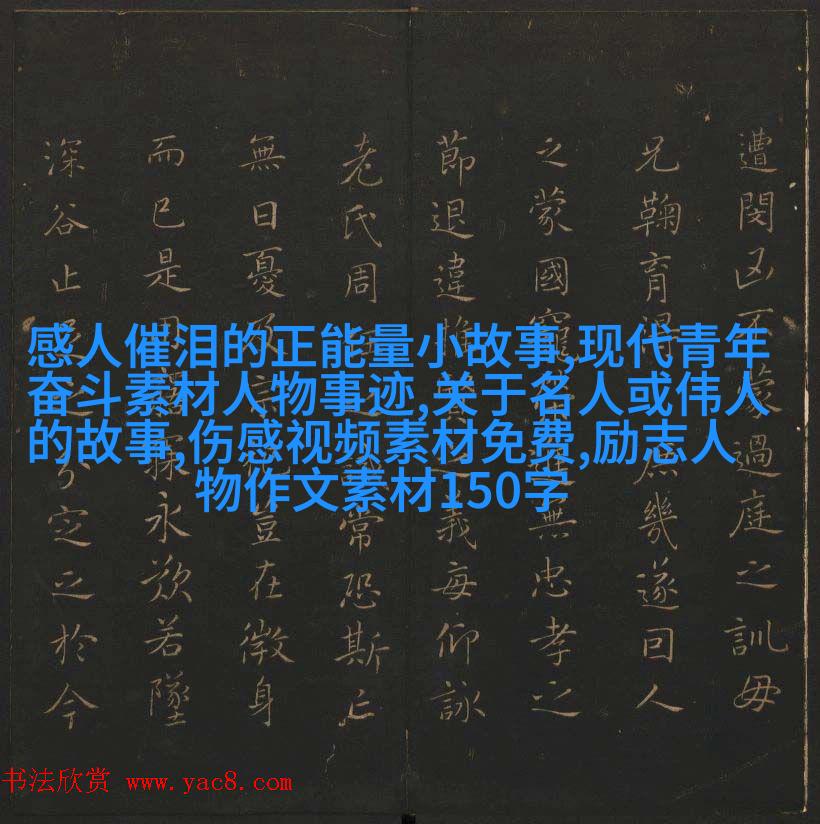 遭閔凶不蒙過庭之訓毋
兄鞠育得庶幾遂回人
之蒙國寵進無忠孝之
節退違推之義每仰詠
老氏周常恐斯亡
無日憂及豈在微身
而已是用永歎若墜
深谷止足之分定之於今
感人催泪的正能量小故事,现代青年
奋斗素材人物事迹,关于名人或伟人
的故事,伤感视频素材免费,励志人
物作文素材150字
书法欣赏 www.yac8.com